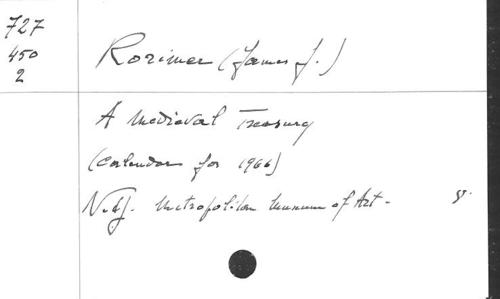 727
450
2
Rorimer (James J.)
A Medieval Treasury
(Calendar for 1966)
N.Y. Metropolitan Museum of Art - 8.